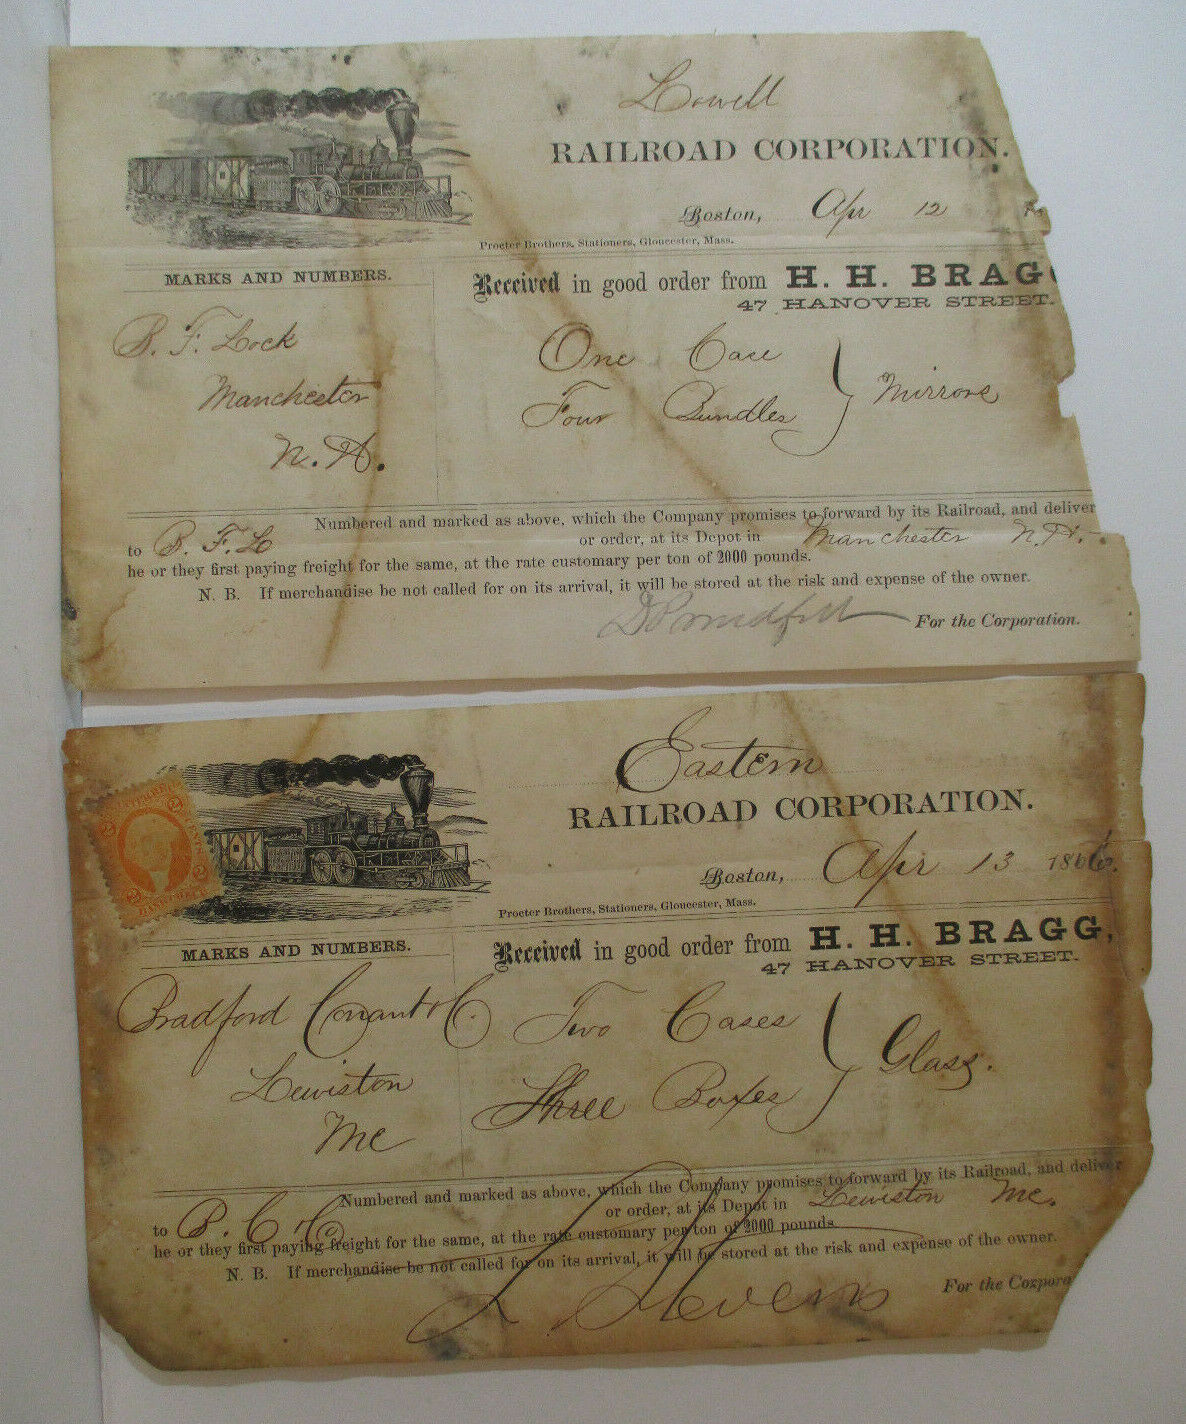 Lowell
RAILROAD CORPORATION.
Boston, Apr 12
Procter Brothers, Stationers, Gloucester, Mass.
MARKS AND NUMBERS.
Received in good order from H. H. BRAGG
47 HANOVER STREET.
B. F. Lock
Manchester
N. H.
One Case
Four Bundles
Mirrors
Numbered and marked as above, which the Company promises to forward by its Railroad, and deliver
to B. F. L or order, at its Depot in Manchester N. H.
he or they first paying freight for the same, at the rate customary per ton of 2000 pounds.
N. B. If merchandise be not called for on its arrival, it will be stored at the risk and expense of the owner.
For the Corporation.
Eastern
RAILROAD CORPORATION.
Boston, Apr 13 1866.
Procter Brothers, Stationers, Gloucester, Mass.
MARKS AND NUMBERS.
Received in good order from H. H. BRAGG,
47 HANOVER STREET.
Bradford Conant & C.
Lewiston
Me
Two Cases
Three Boxes
Glass.
Numbered and marked as above, which the Company promises to forward by its Railroad, and deliver
to B. C & C or order, at its Depot in Lewiston Me.
he or they first paying freight for the same, at the rate customary per ton of 2000 pounds
N. B. If merchandise be not called for on its arrival, it will be stored at the risk and expense of the owner.
For the Corpora